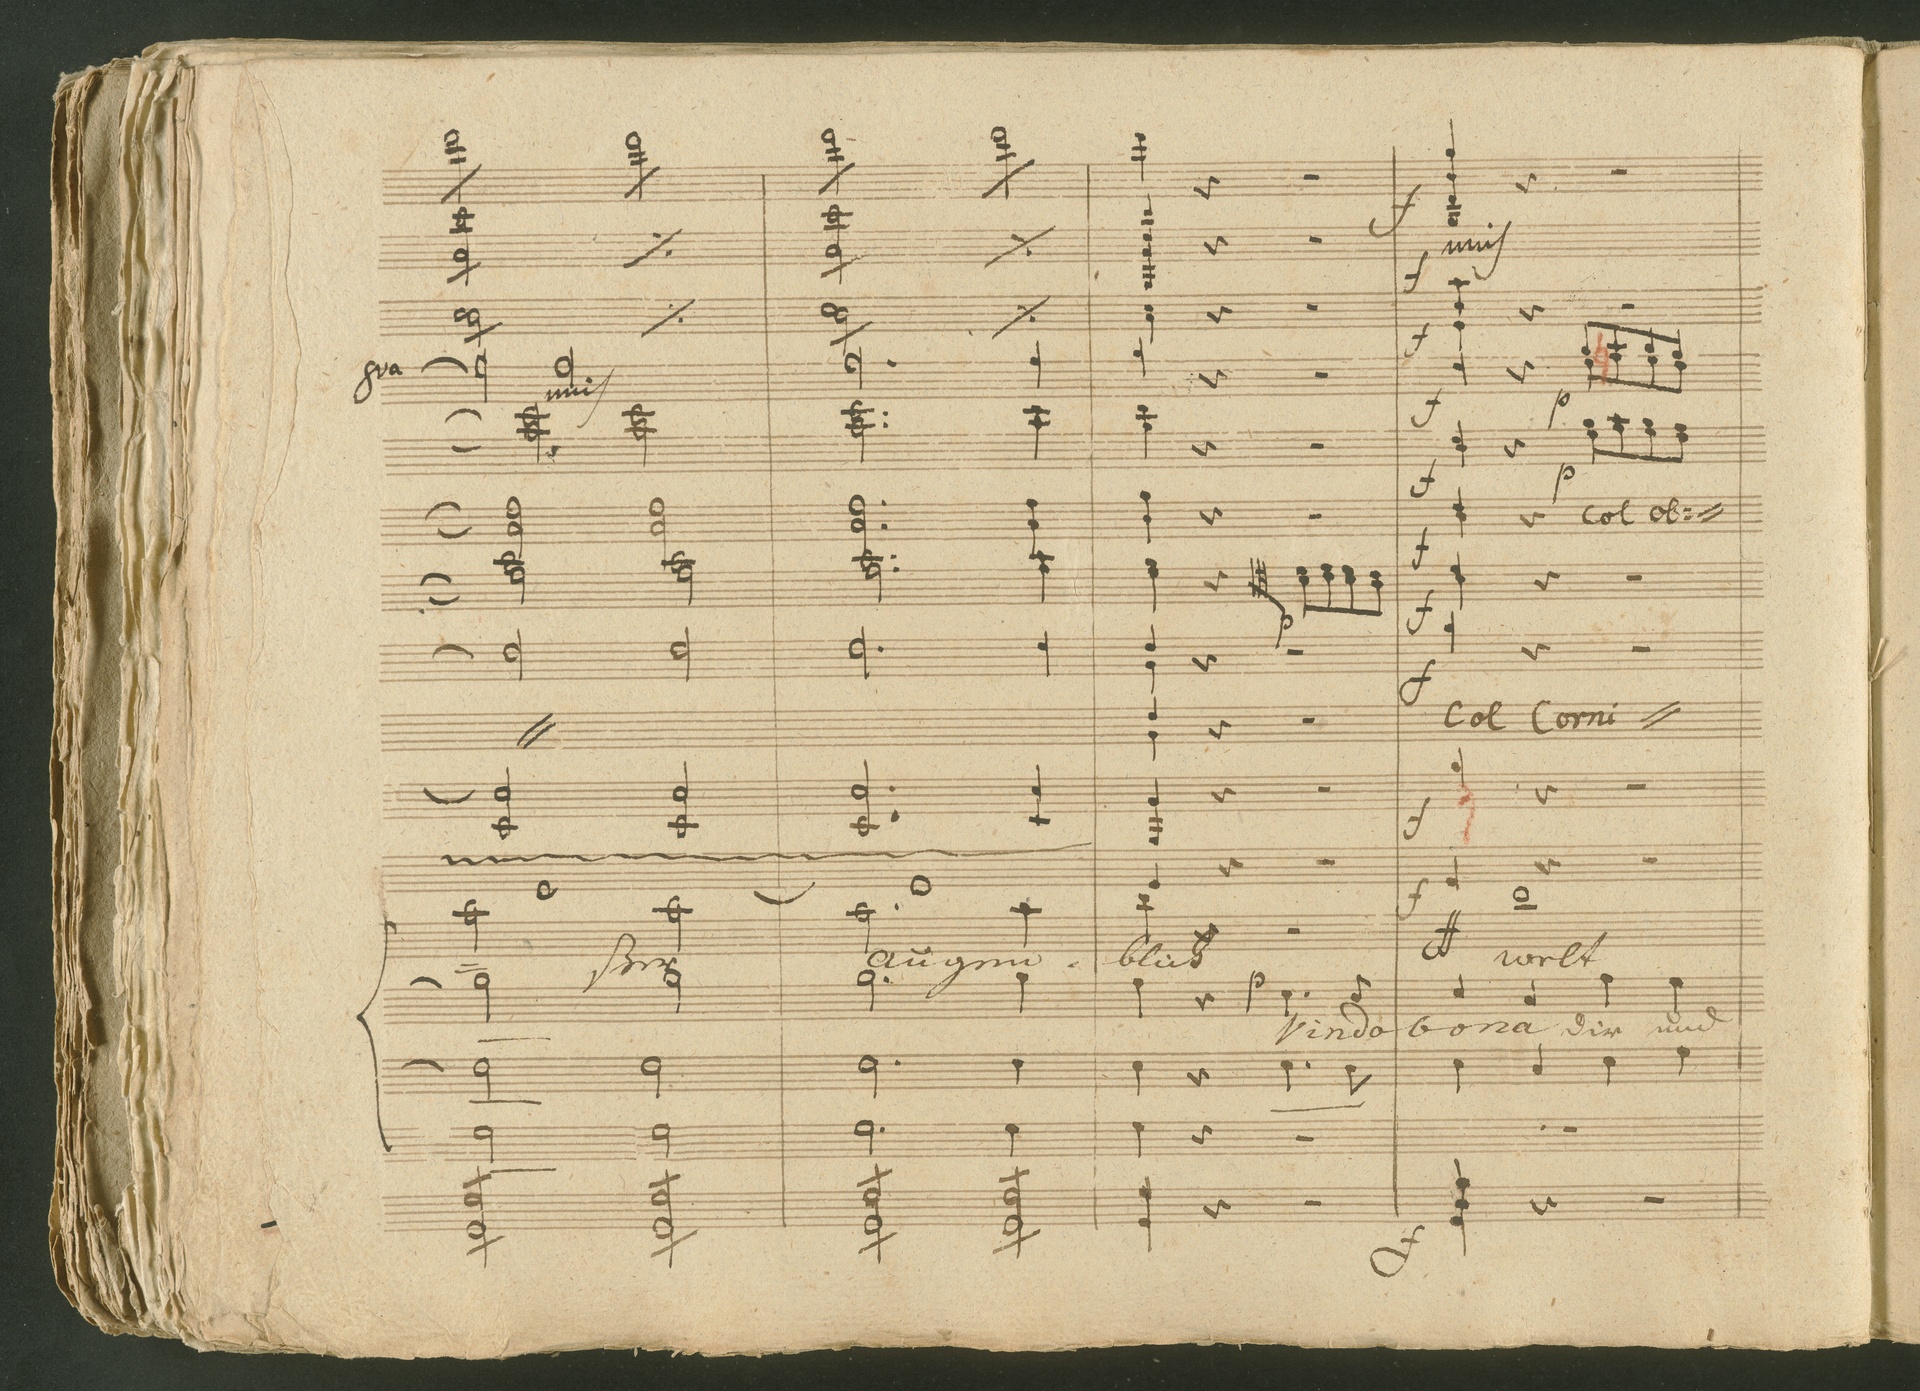 f
unis
f
f
8va
unis
f
p
f
p
f
Col ob:
f
p
f
Col Corni
f
f
ßer augen - blick
ff
welt
p
Vindobona dir und
ff